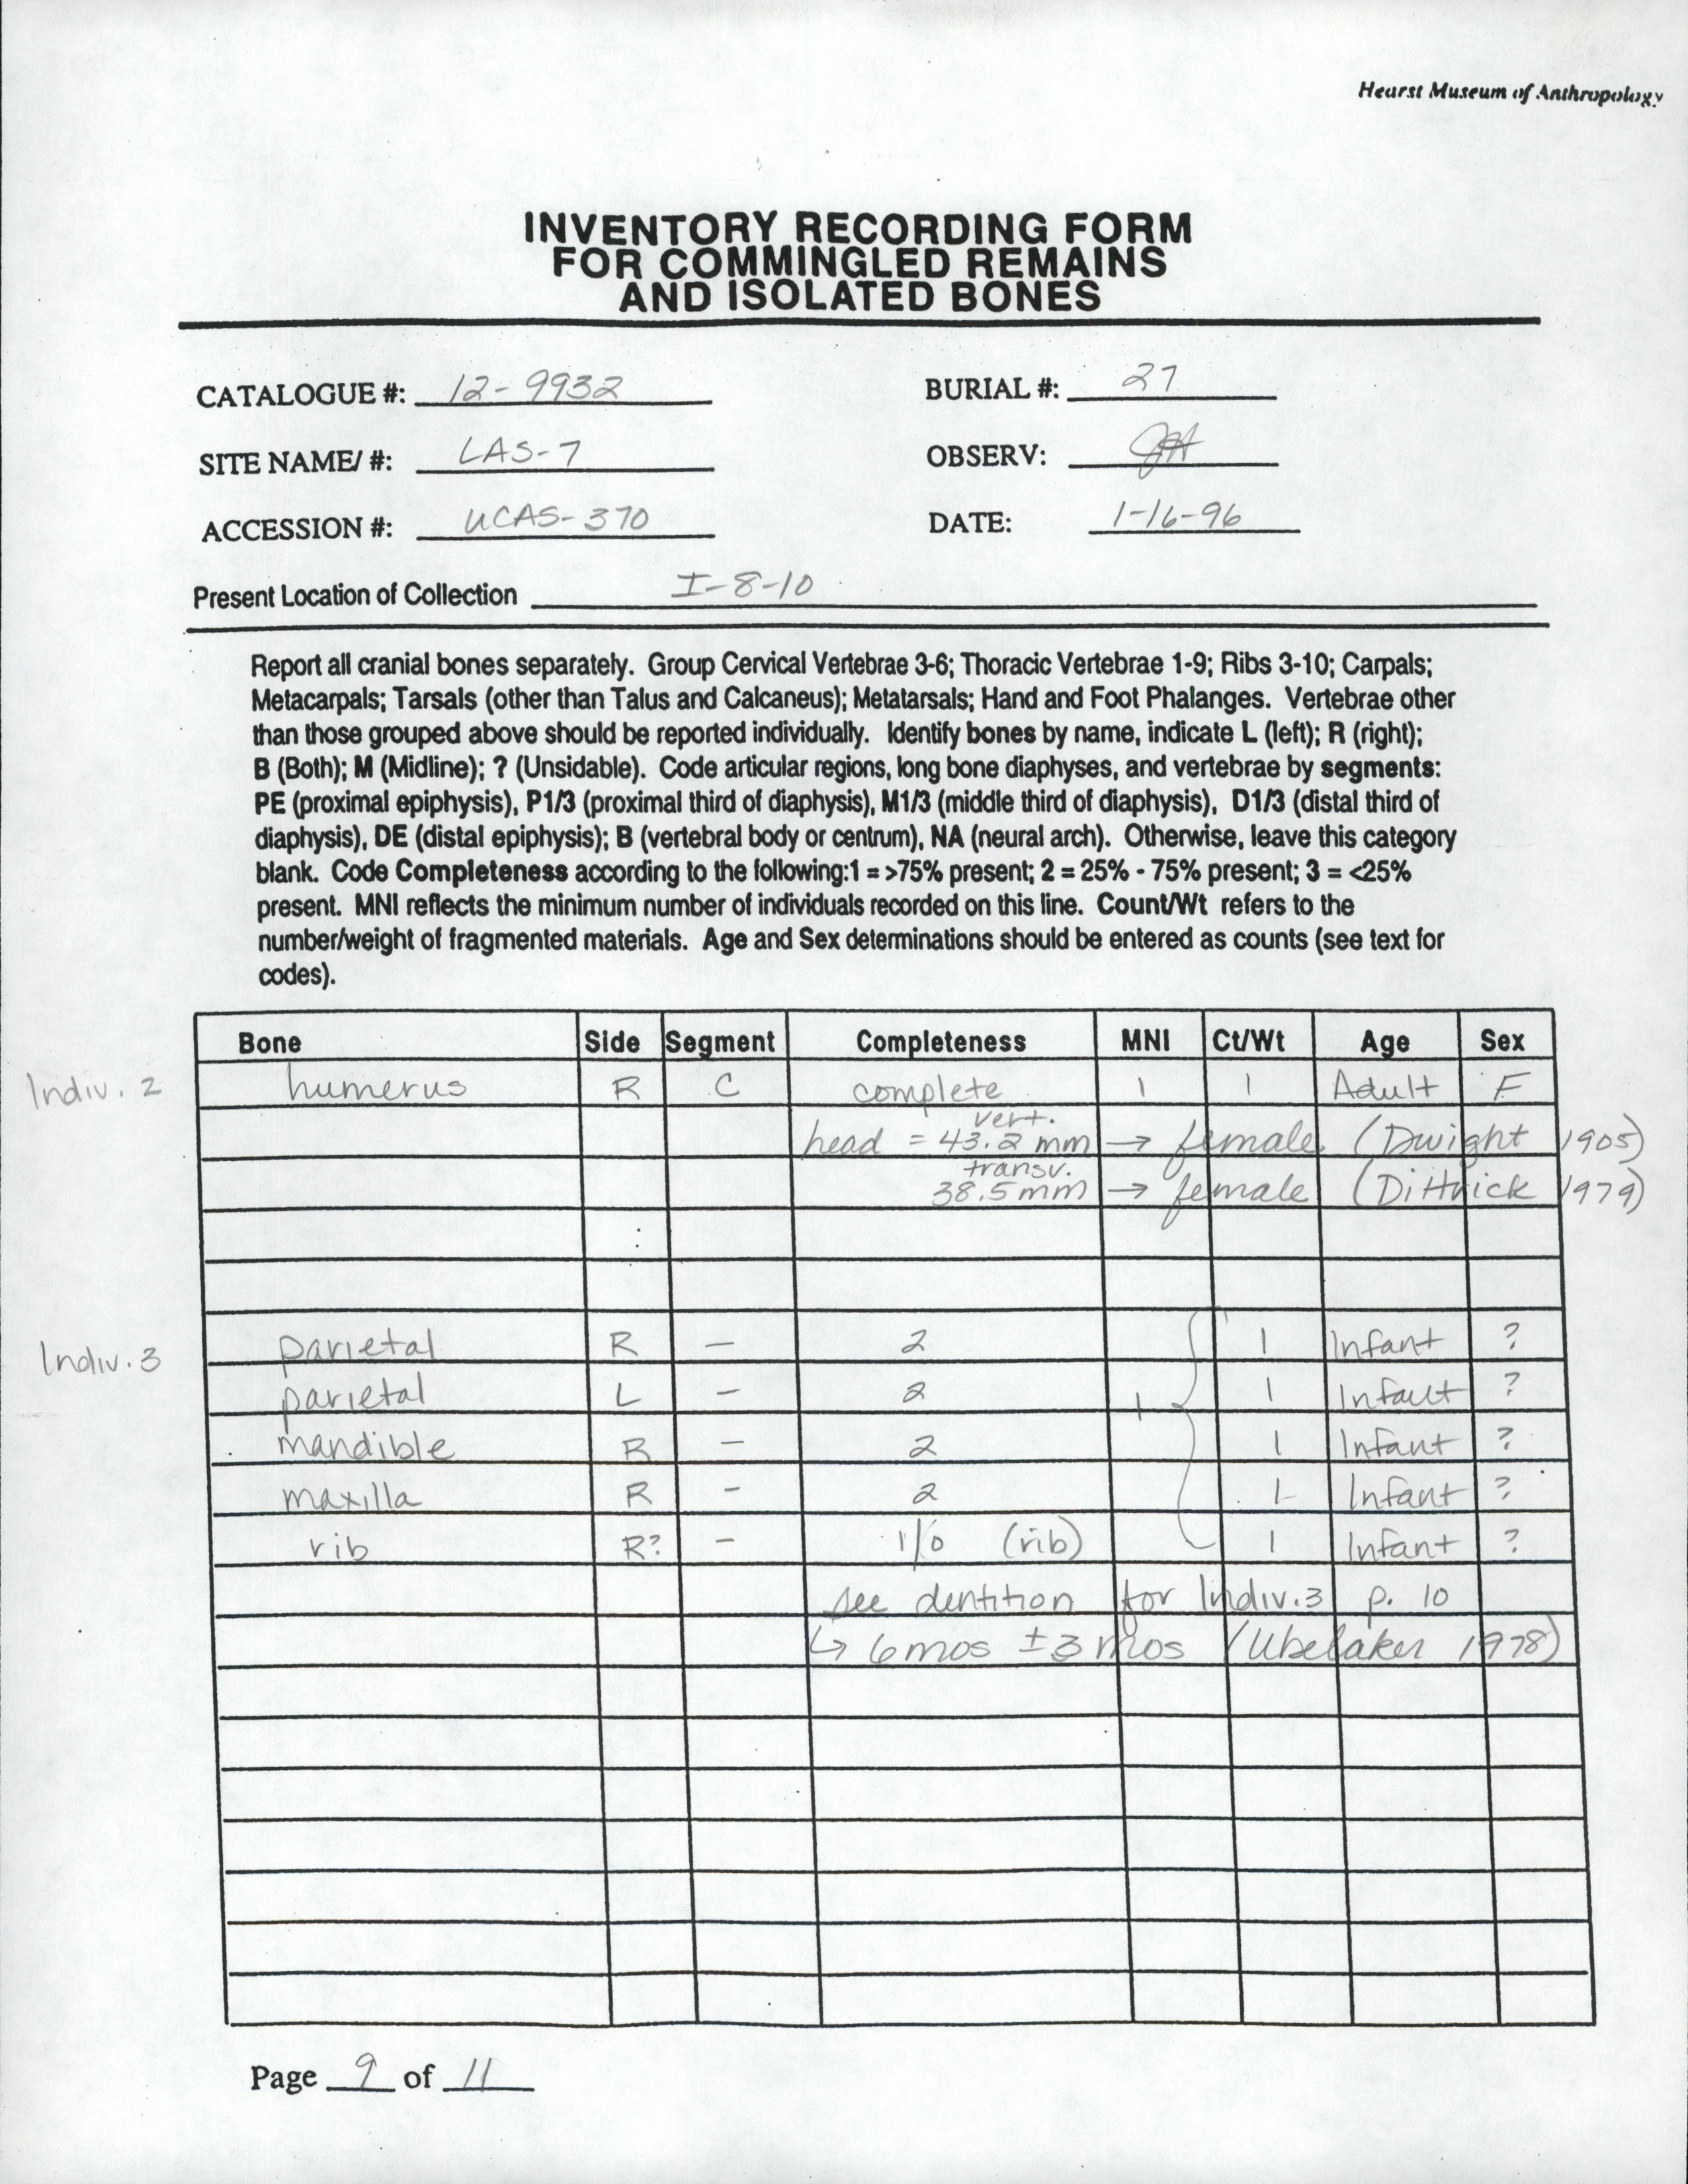 Hearst Museum of Anthropology
INVENTORY RECORDING FORM
FOR COMMINGLED REMAINS
AND ISOLATED BONES
CATALOGUE #: 12-9932 BURIAL #: 27
SITE NAME/ #: LAS-7 OBSERV:
ACCESSION #: UCAS-370 DATE: 1-16-96
Present Location of Collection I-8-10
Report all cranial bones separately. Group Cervical Vertebrae 3-6; Thoracic Vertebrae 1-9; Ribs 3-10; Carpals;
Metacarpals; Tarsals (other than Talus and Calcaneus); Metatarsals; Hand and Foot Phalanges. Vertebrae other
than those grouped above should be reported individually. Identify bones by name, indicate L (left); R (right);
B (Both); M (Midline); ? (Unsidable). Code articular regions, long bone diaphyses, and vertebrae by segments:
PE (proximal epiphysis), P1/3 (proximal third of diaphysis), M1/3 (middle third of diaphysis), D1/3 (distal third of
diaphysis), DE (distal epiphysis); B (vertebral body or centrum), NA (neural arch). Otherwise, leave this category
blank. Code Completeness according to the following:1 = >75% present; 2 = 25% - 75% present; 3 = <25%
present. MNI reflects the minimum number of individuals recorded on this line. Count/Wt refers to the
number/weight of fragmented materials. Age and Sex determinations should be entered as counts (see text for
codes).
Bone Side Segment Completeness MNI Ct/Wt Age Sex
Indiv. 2 humerus R C complete 1 1 Adult F
vert.
head = 43.2 mm → female (Dwight 1905)
transv.
38.5 mm → female (Dittrick 1979)
Indiv. 3 parietal R — 2 1 Infant ?
parietal L — 2 1 1 Infant ?
mandible R — 2 1 Infant ?
maxilla R - 2 1 Infant ?
rib R? - 1/0 (rib) 1 Infant ?
see dentition for Indiv.3 p. 10
↳ 6 mos ±3 mos (Ubelaker 1978)
Page 9 of 11